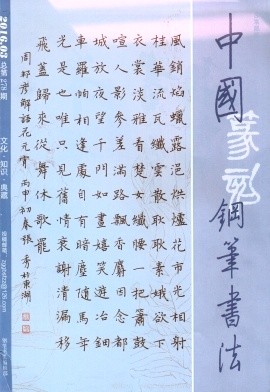 中國鋼筆書法
風銷焰蠟露浥烘爐花市光相射
桂華流瓦纖雲散耿耿素娥欲下
衣裳淡雅看楚女纖腰一把簫鼓
喧人影參差滿路飄香麝因念都
城放夜望千門如晝嬉笑遊冶鈿
車羅帕相逢處自有暗塵隨馬年
光是也唯只見舊情衰謝清漏移
飛蓋歸來從舞休歌罷
周邦彥解語花元宵 丙申初春張秀於東湖
2016.03
总第278期
文化·知识·典藏
投稿邮箱